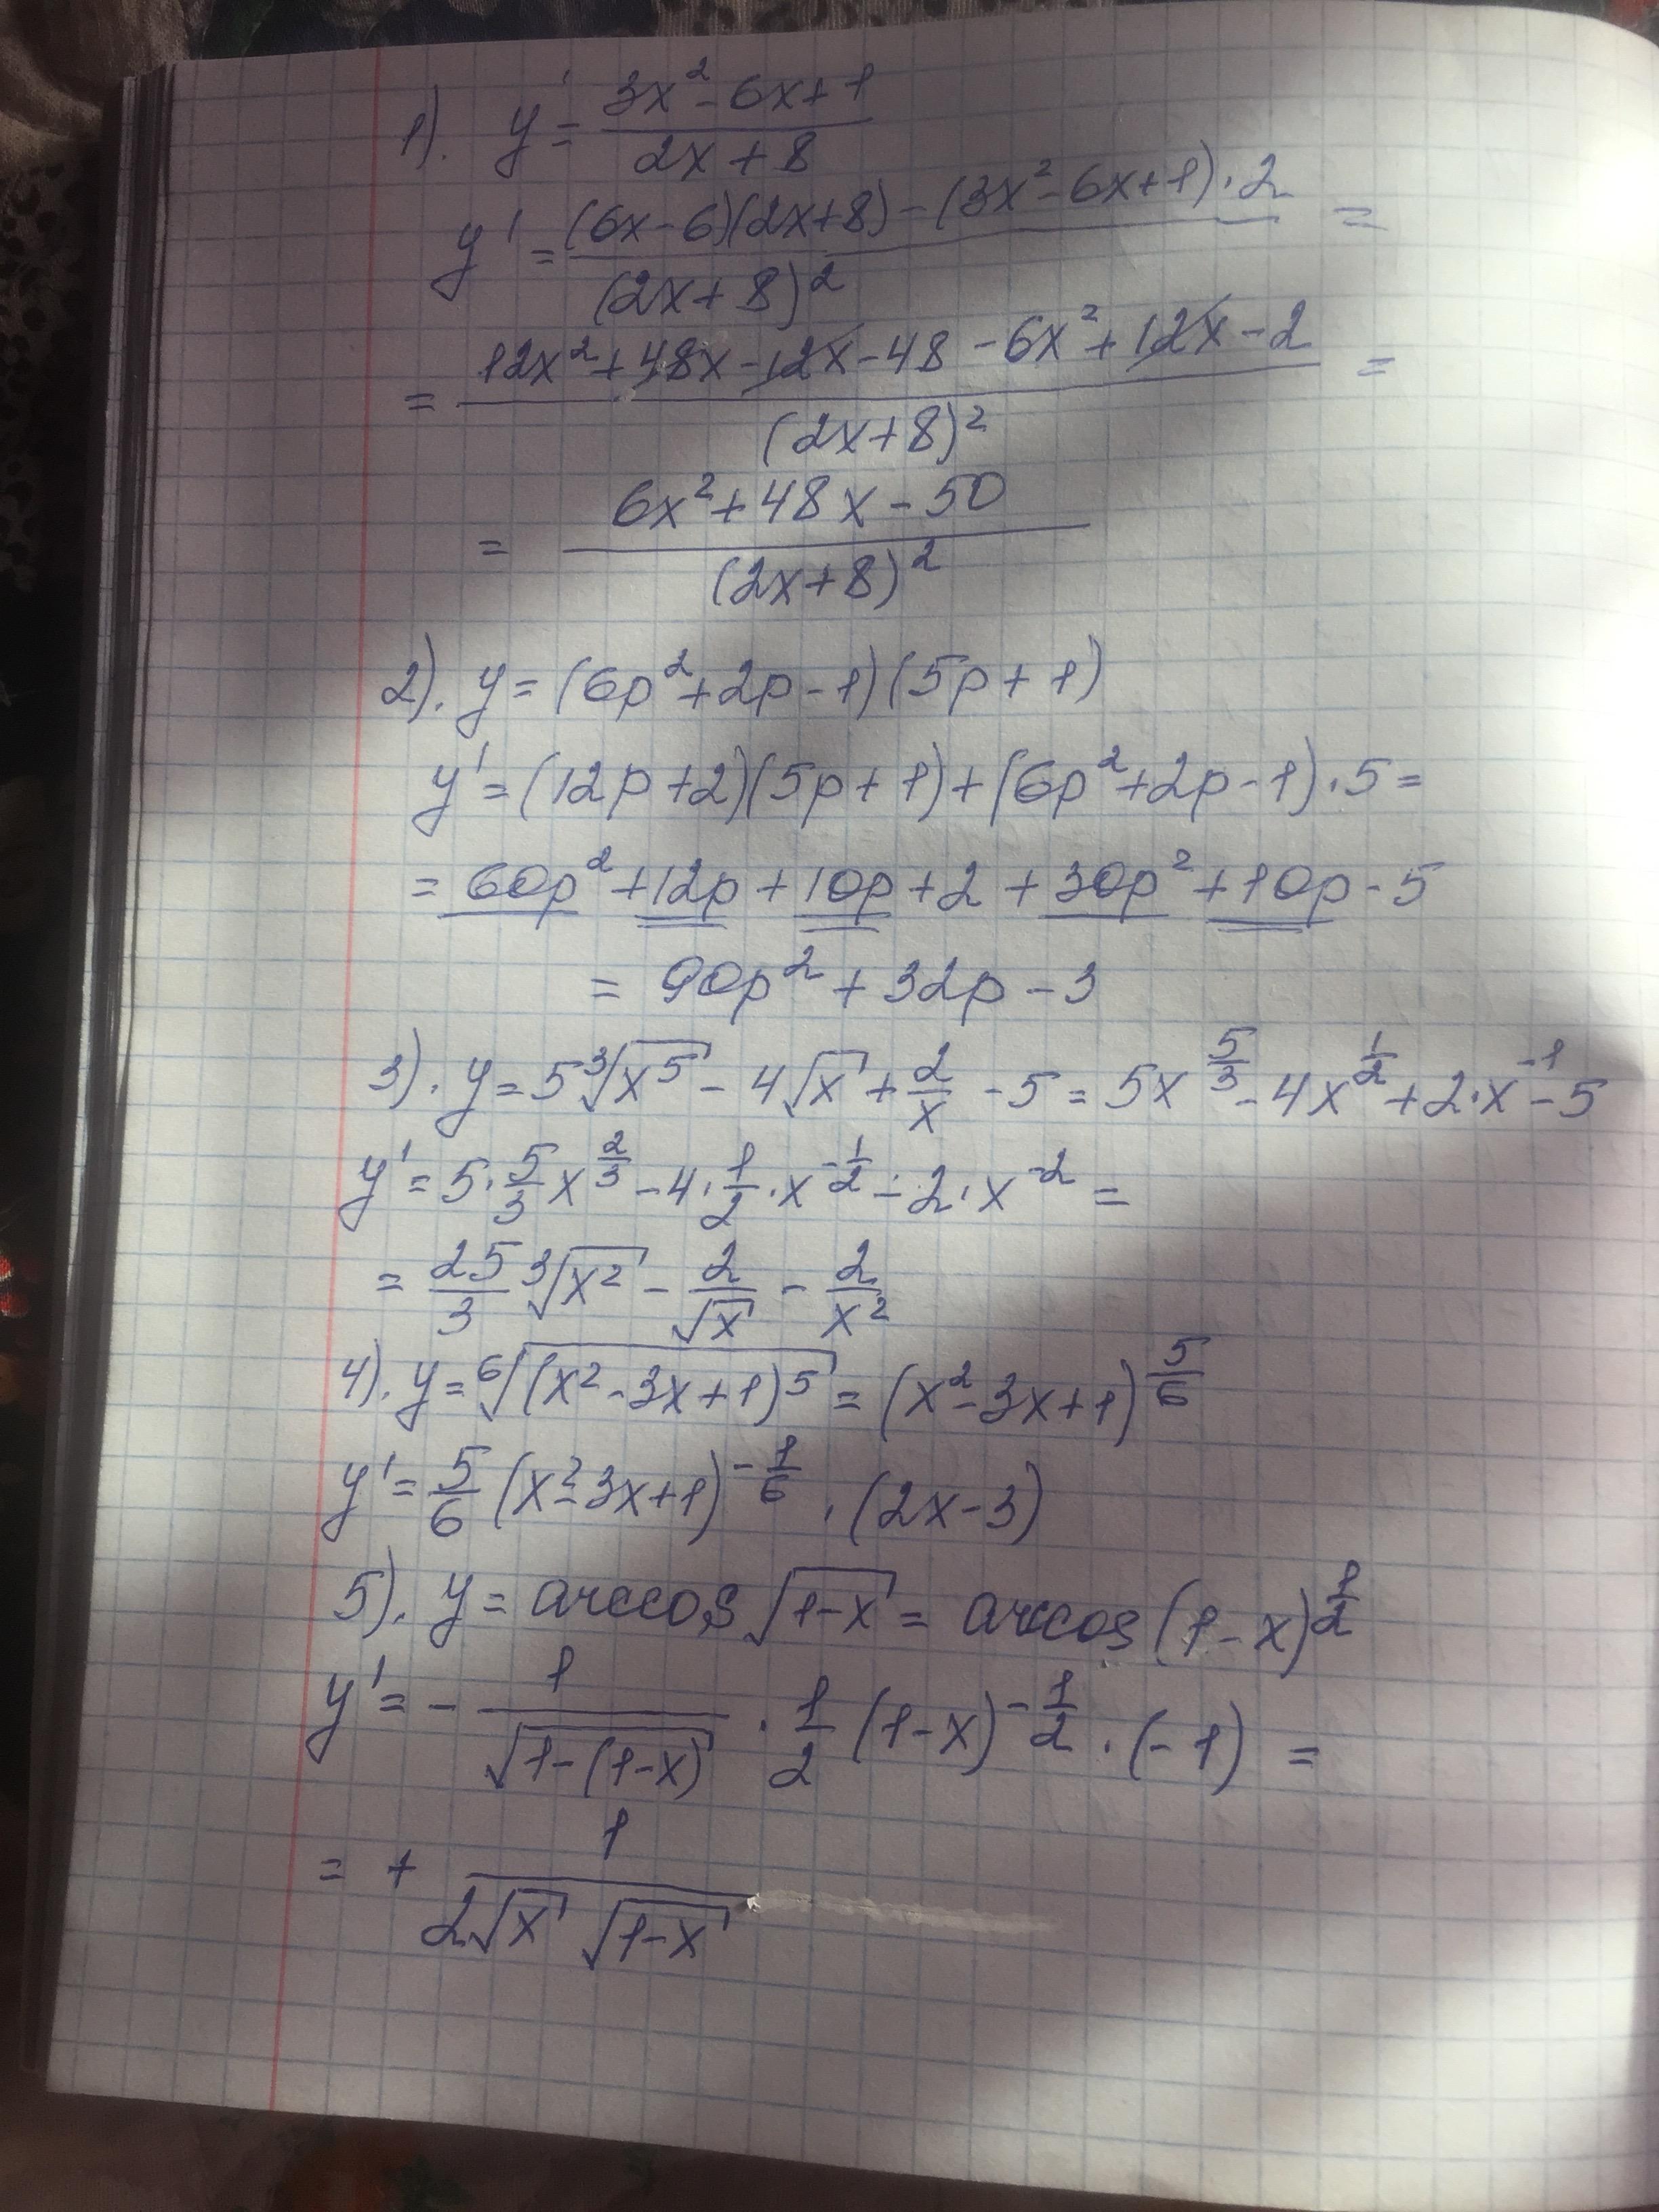 1). y' = (3x² - 6x + 1)/(2x + 8)
y' = ((6x - 6)(2x + 8) - (3x² - 6x + 1) · 2)/(2x + 8)² =
= (12x² + 48x - 12x - 48 - 6x² + 12x - 2)/(2x + 8)² =
= (6x² + 48x - 50)/(2x + 8)²
2). y = (6p² + 2p - 1)(5p + 1)
y' = (12p + 2)(5p + 1) + (6p² + 2p - 1) · 5 =
= 60p² + 12p + 10p + 2 + 30p² + 10p - 5
= 90p² + 32p - 3
3). y = 5∛(x⁵) - 4√x + 2/x - 5 = 5x^(5/3) - 4x^(1/2) + 2 · x^(-1) - 5
y' = 5 · 5/3 x^(2/3) - 4 · 1/2 · x^(-1/2) - 2 · x^(-2) =
= 25/3 ∛(x²) - 2/√x - 2/x²
4). y = ⁶√((x² - 3x + 1)⁵) = (x² - 3x + 1)^(5/6)
y' = 5/6 (x² - 3x + 1)^(-1/6) · (2x - 3)
5). y = arccos √(1-x) = arccos (1 - x)^(1/2)
y' = - 1/√(1-(1-x)) · 1/2 (1-x)^(-1/2) · (-1) =
= + 1/(2√x √(1-x))